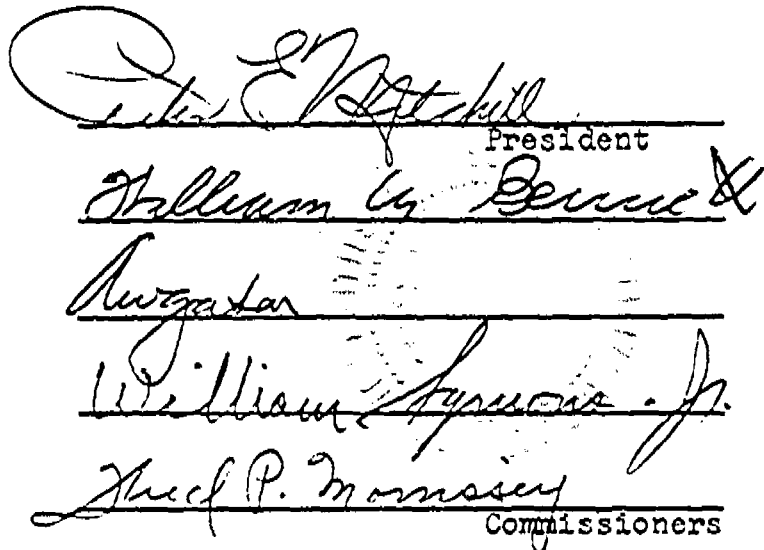 Peter E Mitchell
President
William M Bennett
AWGatov
William Symons. Jr.
Fred P. Morrissey
Commissioners